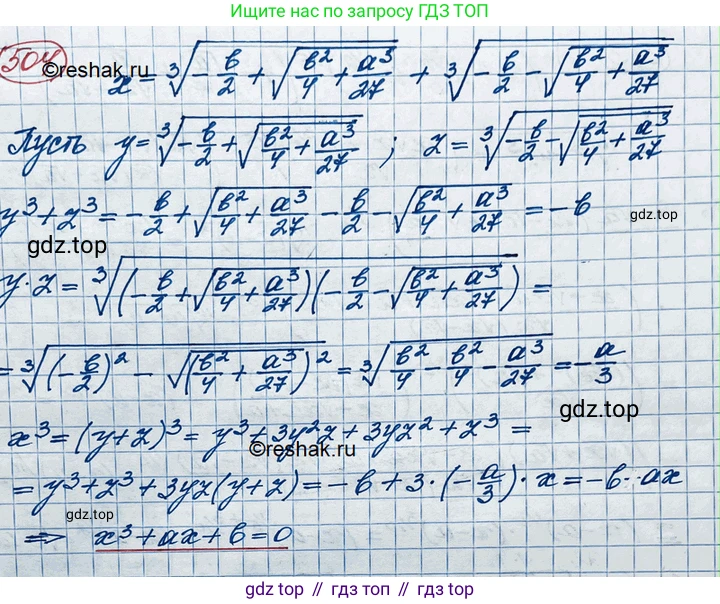 Ищите нас по запросу ГДЗ ТОП
504 ©reshak.ru x = ∛(-b/2 + √(b²/4 + a³/27)) + ∛(-b/2 - √(b²/4 + a³/27))
Пусть y = ∛(-b/2 + √(b²/4 + a³/27)) ; z = ∛(-b/2 - √(b²/4 + a³/27))
y³ + z³ = -b/2 + √(b²/4 + a³/27) - b/2 - √(b²/4 + a³/27) = -b
gdz.top
y·z = ∛((-b/2 + √(b²/4 + a³/27))(-b/2 - √(b²/4 + a³/27))) =
= ∛((-b/2)² - √(b²/4 + a³/27)²) = ∛(b²/4 - b²/4 - a³/27) = -a/3
gdz.top
x³ = (y+z)³ = y³ + 3y²z + 3yz² + z³ =
©reshak.ru
= y³ + z³ + 3yz(y+z) = -b + 3·(-a/3)·x = -b - ax
gdz.top
⇒ x³ + ax + b = 0
gdz top // гдз топ // gdz.top